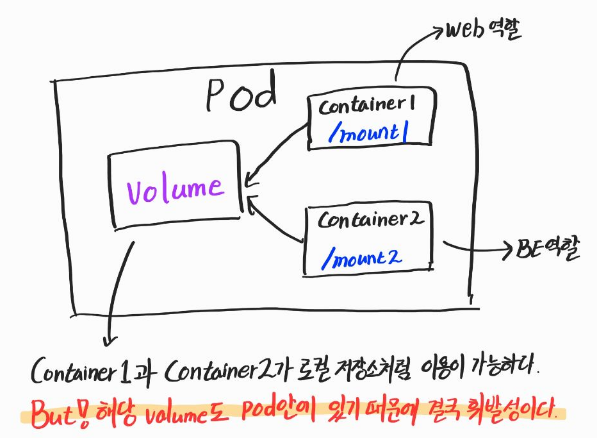 Web역할
Pod
Container1
/mount1
Volume
Container2
/mount2
BE역할
Container1과 Container2가 로컬 저장소처럼 이용이 가능하다.
But!! 해당 volume도 Pod안에 있기 때문에 결국 휘발성이다.